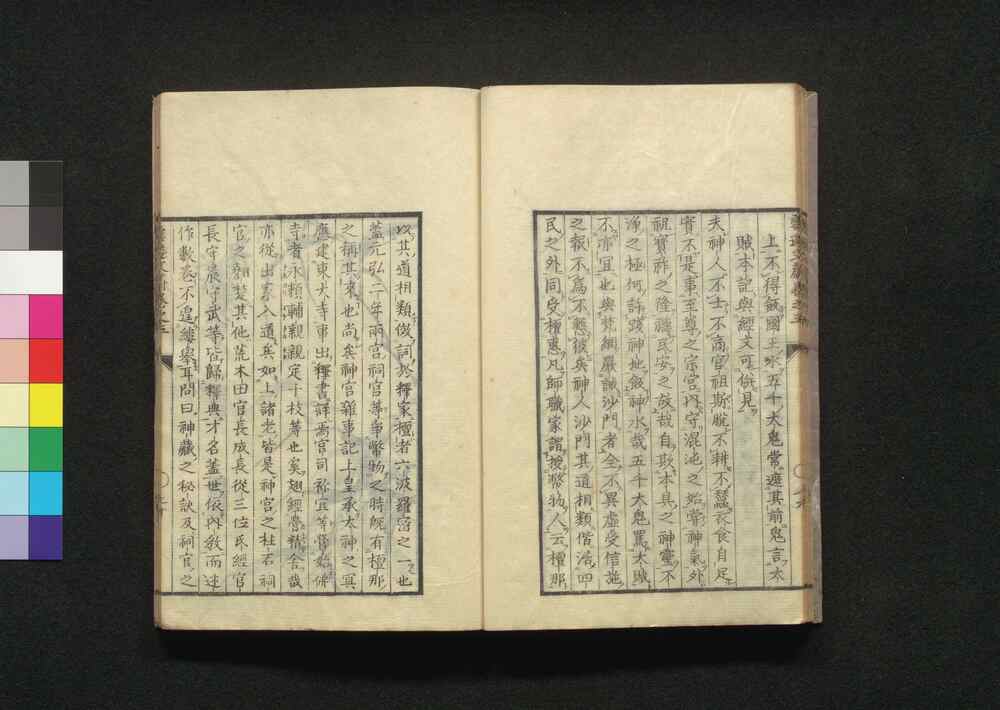 上不得飯國王水五千大鬼常遮其前鬼言大
賊本記與經文可併見
夫神人不士不商官祖斯脫不耕不蠶衣食自足
實不是事至尊之宗宮内守混沌之始常神氣外
祝寶祚之隆禱民安之故哉自取本具之神靈不
淨之極何許踐神地飲神水哉五千大鬼罵大賊
不亦宜也與梵網嚴誡沙門者全不異虛受信施
之報不爲不愍彼矣神人沙門其道相類偕浴四
民之外同受檀惠凡師職家謂授幣物人云檀那
以其道相類倣詞於釋家檀者六波羅蜜之一也
蓋元弘二年兩宮祠官等爭幣物之時旣有檀那
之稱其來也尚矣神宮雜事記上皇承太神之冥
應建東大寺事出釋書譯焉官司祢宜等嘗始佛
寺者永賴輔親親定十枝等也矣翅經營精舍哉
亦從出家入道矣如上諸老皆是神宮之柱石祠
官之翹楚其他荒木田官長成長從三位氏經官
長守晨守武等皆歸釋典才名蓋世依内教而述
作數卷不遑縷擧耳問曰神藏之秘訣及祠官之